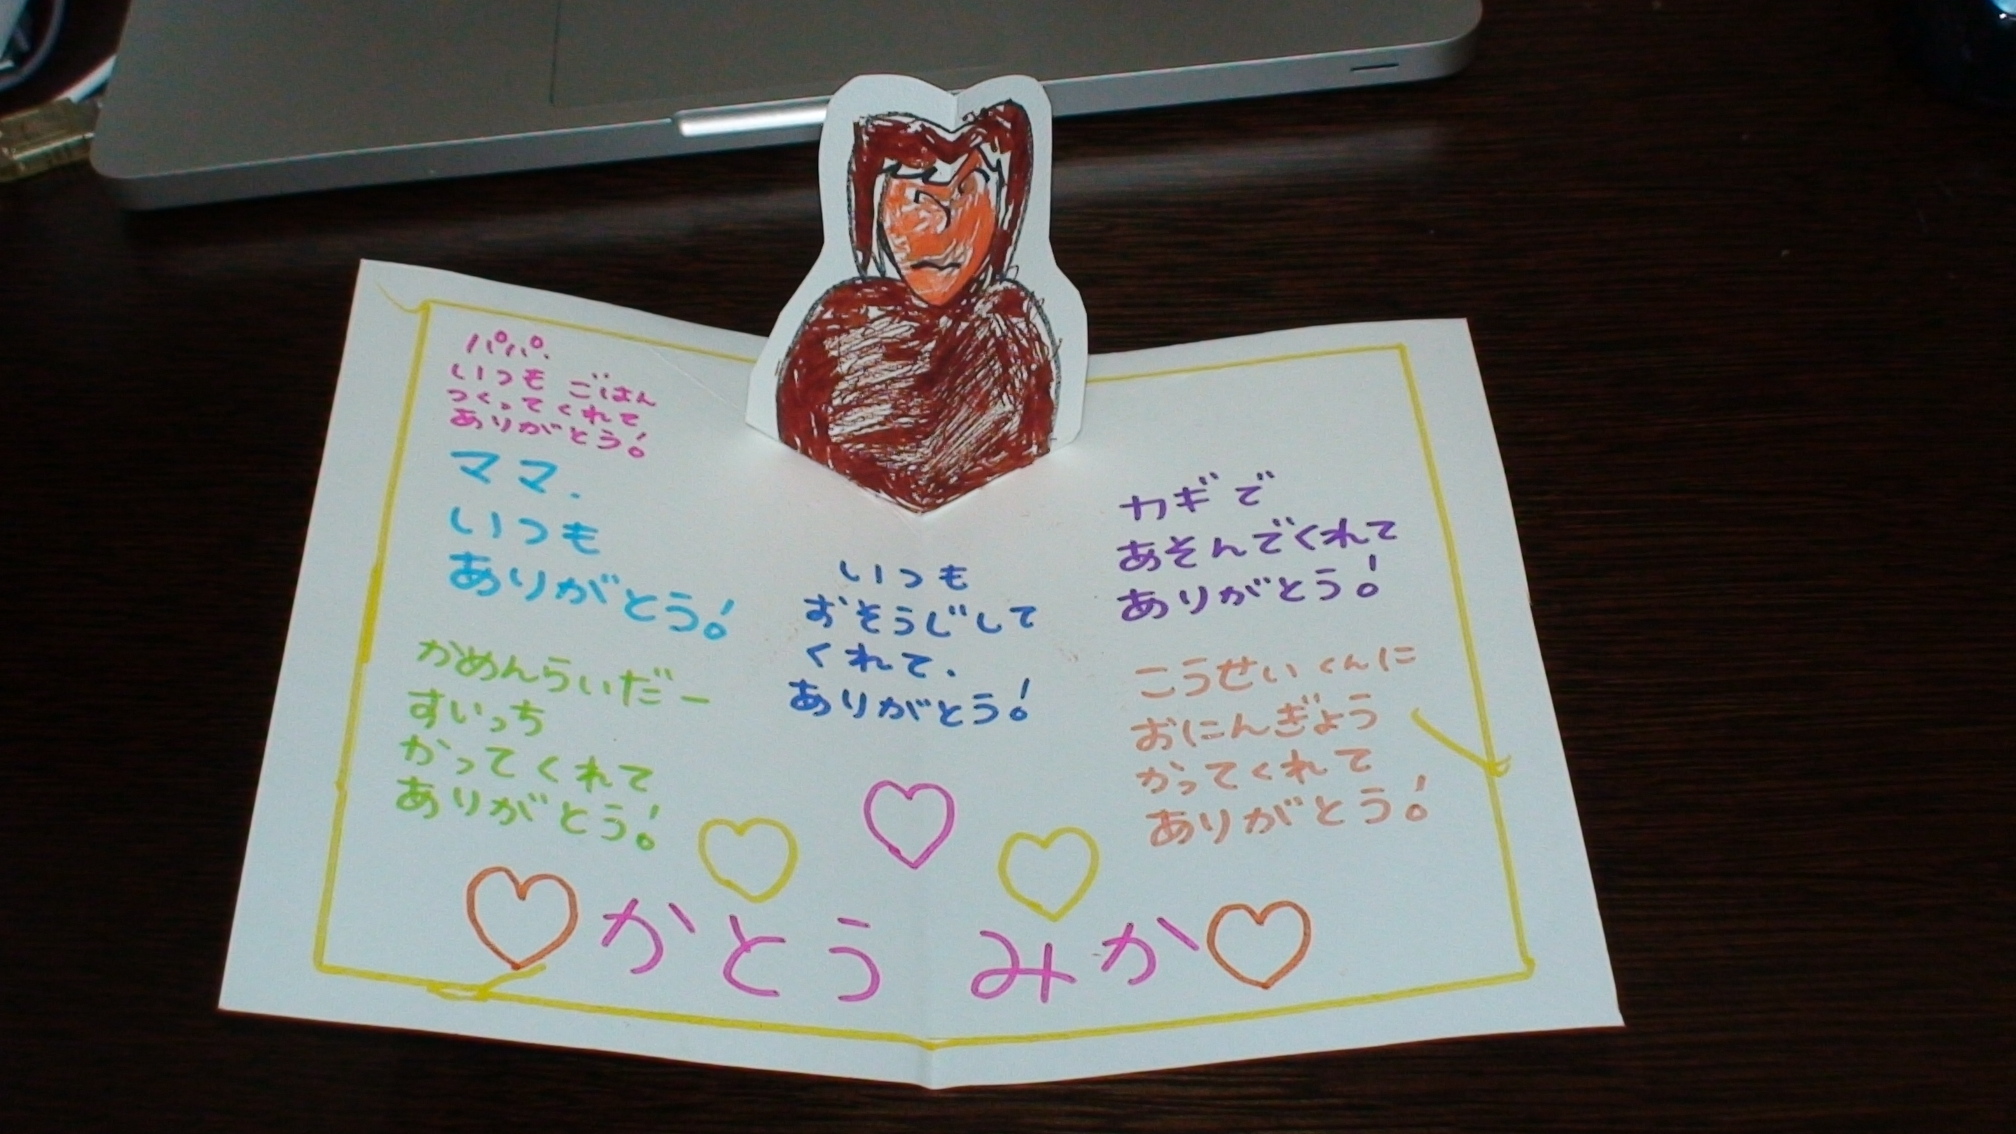 パパ、
いつも ごはん
つくってくれて
ありがとう!
ママ、
いつも
ありがとう!
かめんらいだー
すいっち
かってくれて
ありがとう!
いつも
おそうじして
くれて、
ありがとう!
カギで
あそんでくれて
ありがとう!
こうせいくんに
おにんぎょう
かってくれて
ありがとう!
かとう みか